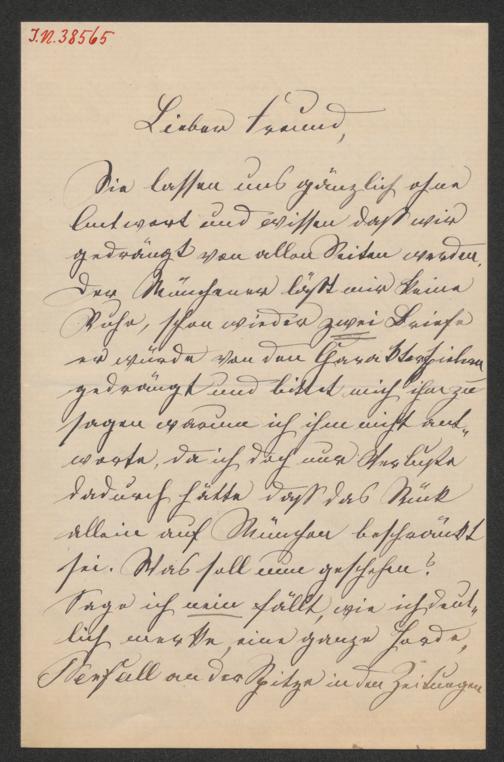 I.N. 38565
Lieber Freund,
Sie lassen uns gänzlich ohne
Antwort und wissen daß wir
gedrängt von allen Seiten werden.
Der Münchener läßt mir keine
Ruhe, schon wieder zwei Briefe
er würde von den
gedrängt und bittet mich ihm zu
sagen warum ich ihm nicht ant„
worte, da ich doch nur Verluste
dadurch hätte daß das Stück
allein auf München beschränkt
sei. Was soll nun geschehen?
Sage ich nein fällt, wie ich deut„
lich merke, eine ganze Horde,
Perfall an der Spitze in den Zeitungen